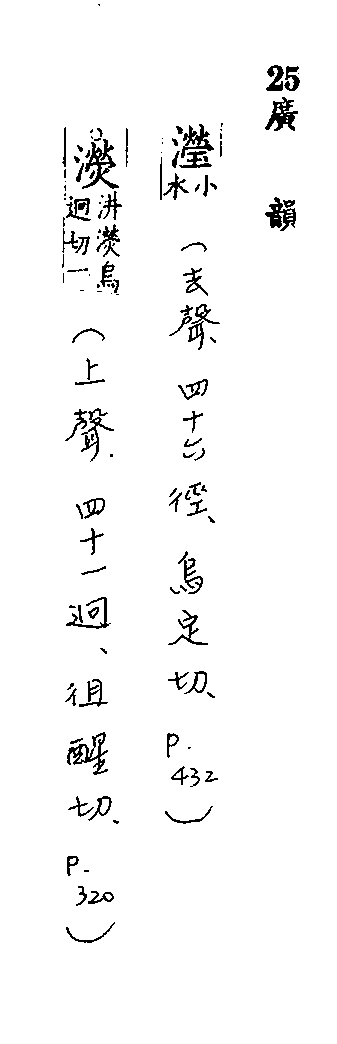 25廣韻
瀅小水（去聲、四十六徑、烏定切、P.432）
濙汫濙烏迥切一（上聲.四十一迥、徂醒切、P.320）